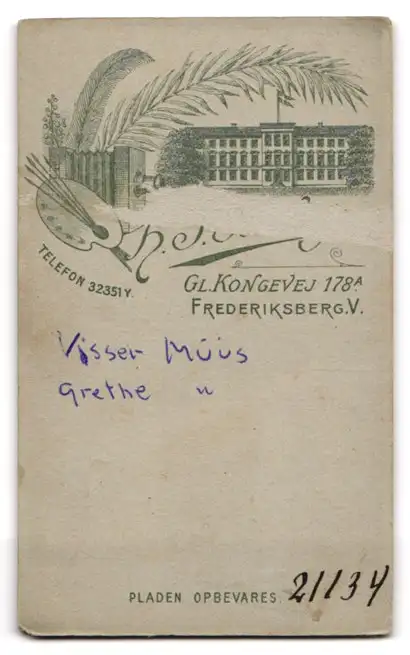 TELEFON 32351Y.
GL. KONGEVEJ 178A
FREDERIKSBERG.V.
Visser Müüs
Grethe "
PLADEN OPBEVARES.
21134